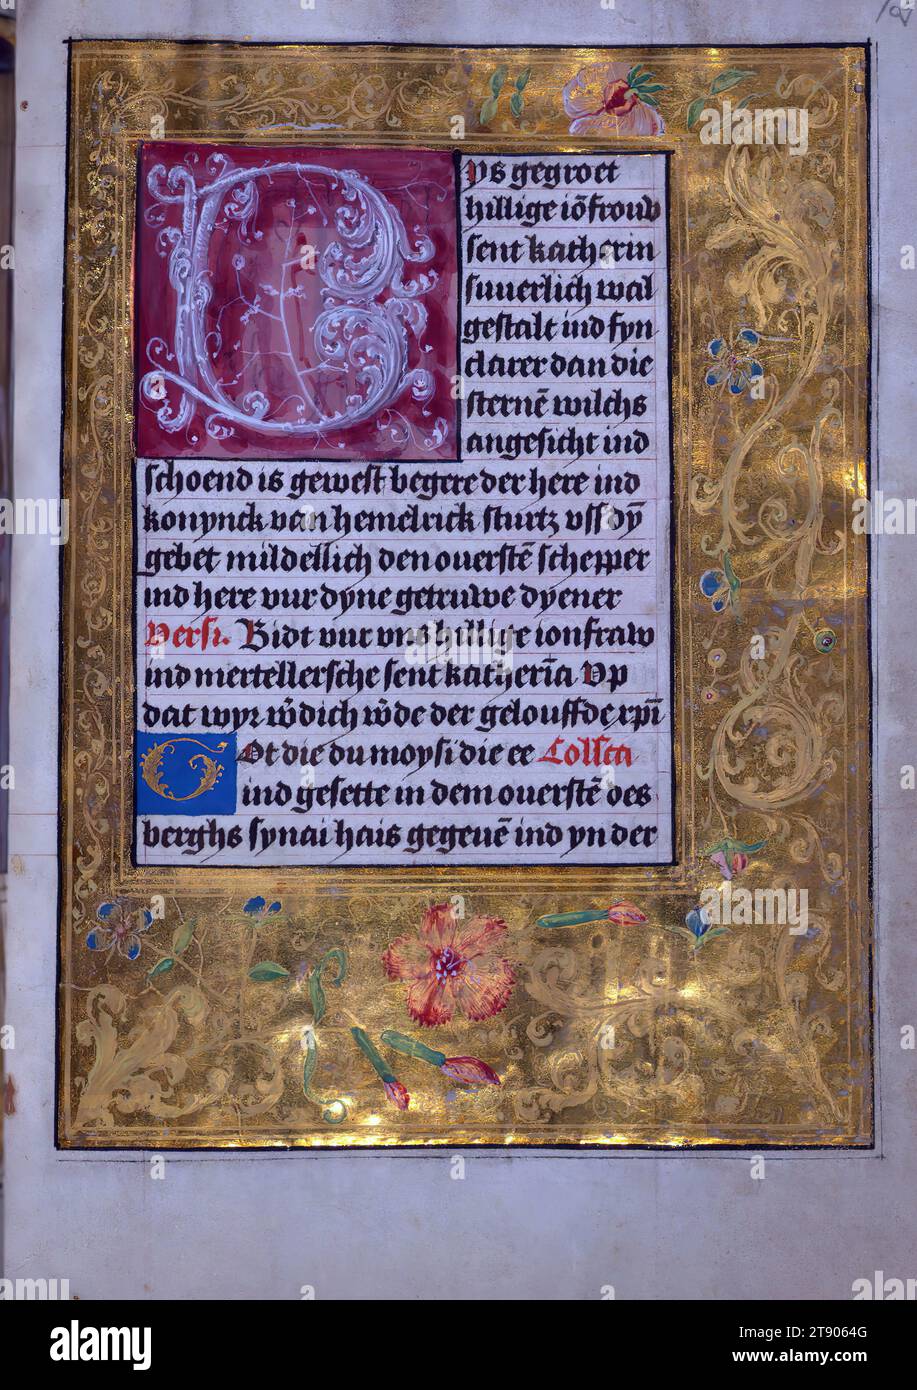 Bys gegroet
hillige iōfrouw
sent katherin
suuerlich wal
gestalt ind syn
clarer dan die
sternē wilchs
angesicht ind
schoend is gewest begere der here ind
konynck van hemelrick sturtz vss dȳ
gebet mildellich den ouerstē schepper
ind here vur dyne getruwe dyener
Versi. Bidt vur vns hillige ionfraw
ind mertellersche sent katheria Vp
dat wyr w̄dich w̄de der gelouffde xpī
Got die du moysi die ee Collta
ind gesette in dem ouerstē des
berghs synai hais gegeuē ind yn der
alamy
alamy
Image ID: 2T9064G
www.alamy.com